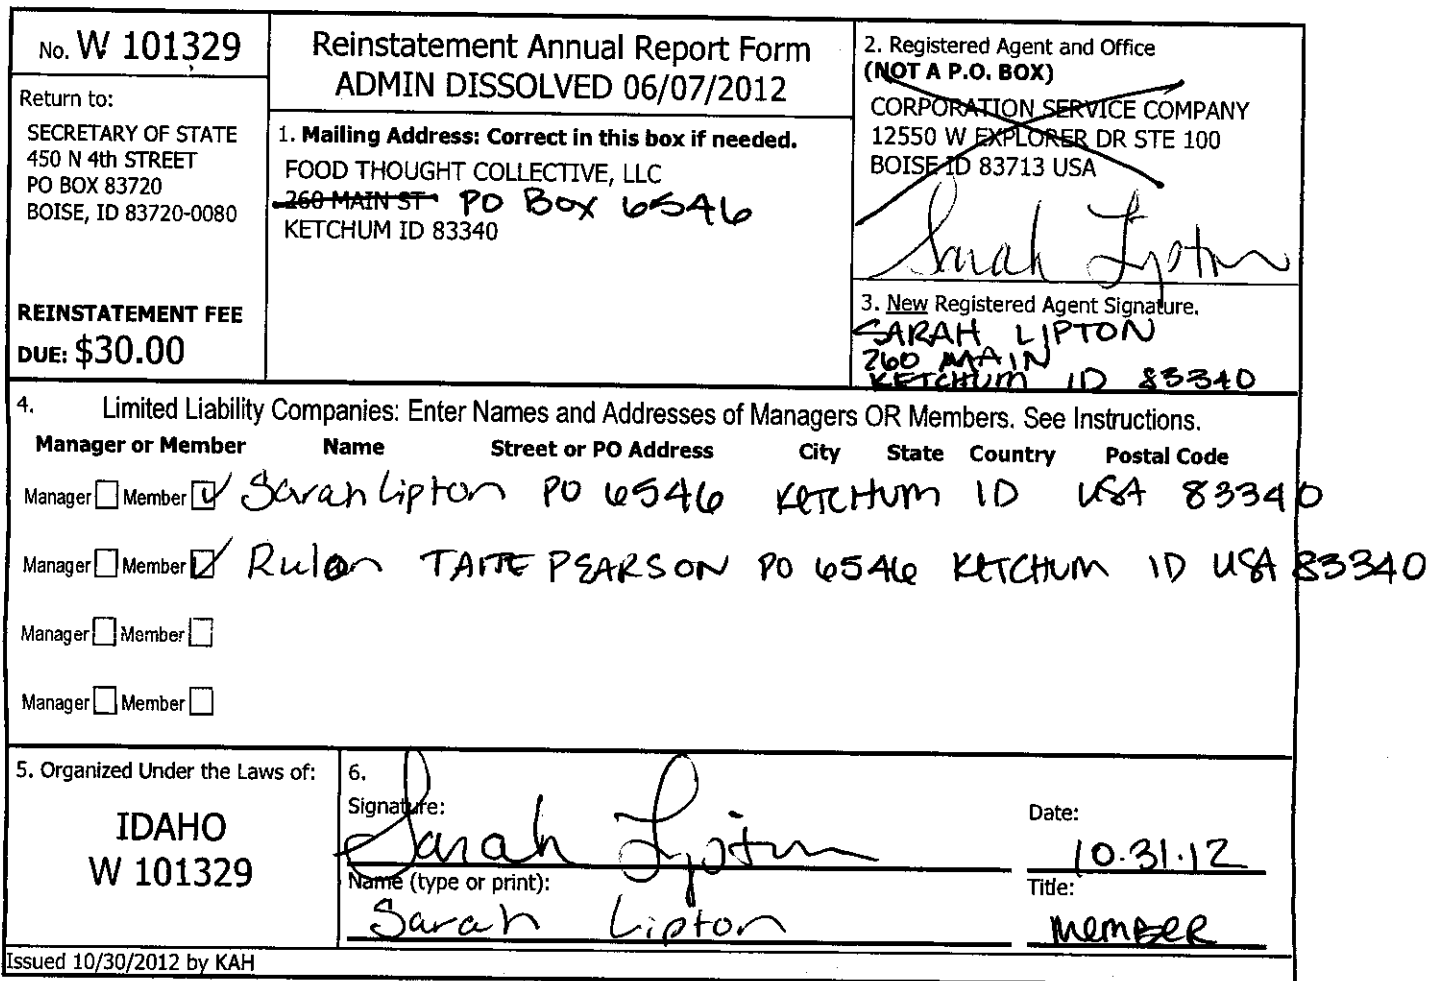 No. W 101329
Return to:
SECRETARY OF STATE
450 N 4th STREET
PO BOX 83720
BOISE, ID 83720-0080
REINSTATEMENT FEE
DUE: $30.00
Reinstatement Annual Report Form
ADMIN DISSOLVED 06/07/2012
1. Mailing Address: Correct in this box if needed.
FOOD THOUGHT COLLECTIVE, LLC
260 MAIN ST PO Box 6546
KETCHUM ID 83340
2. Registered Agent and Office
(NOT A P.O. BOX)
CORPORATION SERVICE COMPANY
12550 W EXPLORER DR STE 100
BOISE ID 83713 USA
Sarah Lipton
3. New Registered Agent Signature.
SARAH LIPTON
260 MAIN
KETCHUM ID 83340
4. Limited Liability Companies: Enter Names and Addresses of Managers OR Members. See Instructions.
Manager or Member Name Street or PO Address City State Country Postal Code
Manager Member Sarah Lipton PO 6546 KETCHUM ID USA 83340
Manager Member Rulon TAITE PEARSON PO 6546 KETCHUM ID USA 83340
Manager Member
Manager Member
5. Organized Under the Laws of:
IDAHO
W 101329
6.
Signature: Sarah Lipton
Date: 10.31.12
Name (type or print): Sarah Lipton
Title: member
Issued 10/30/2012 by KAH